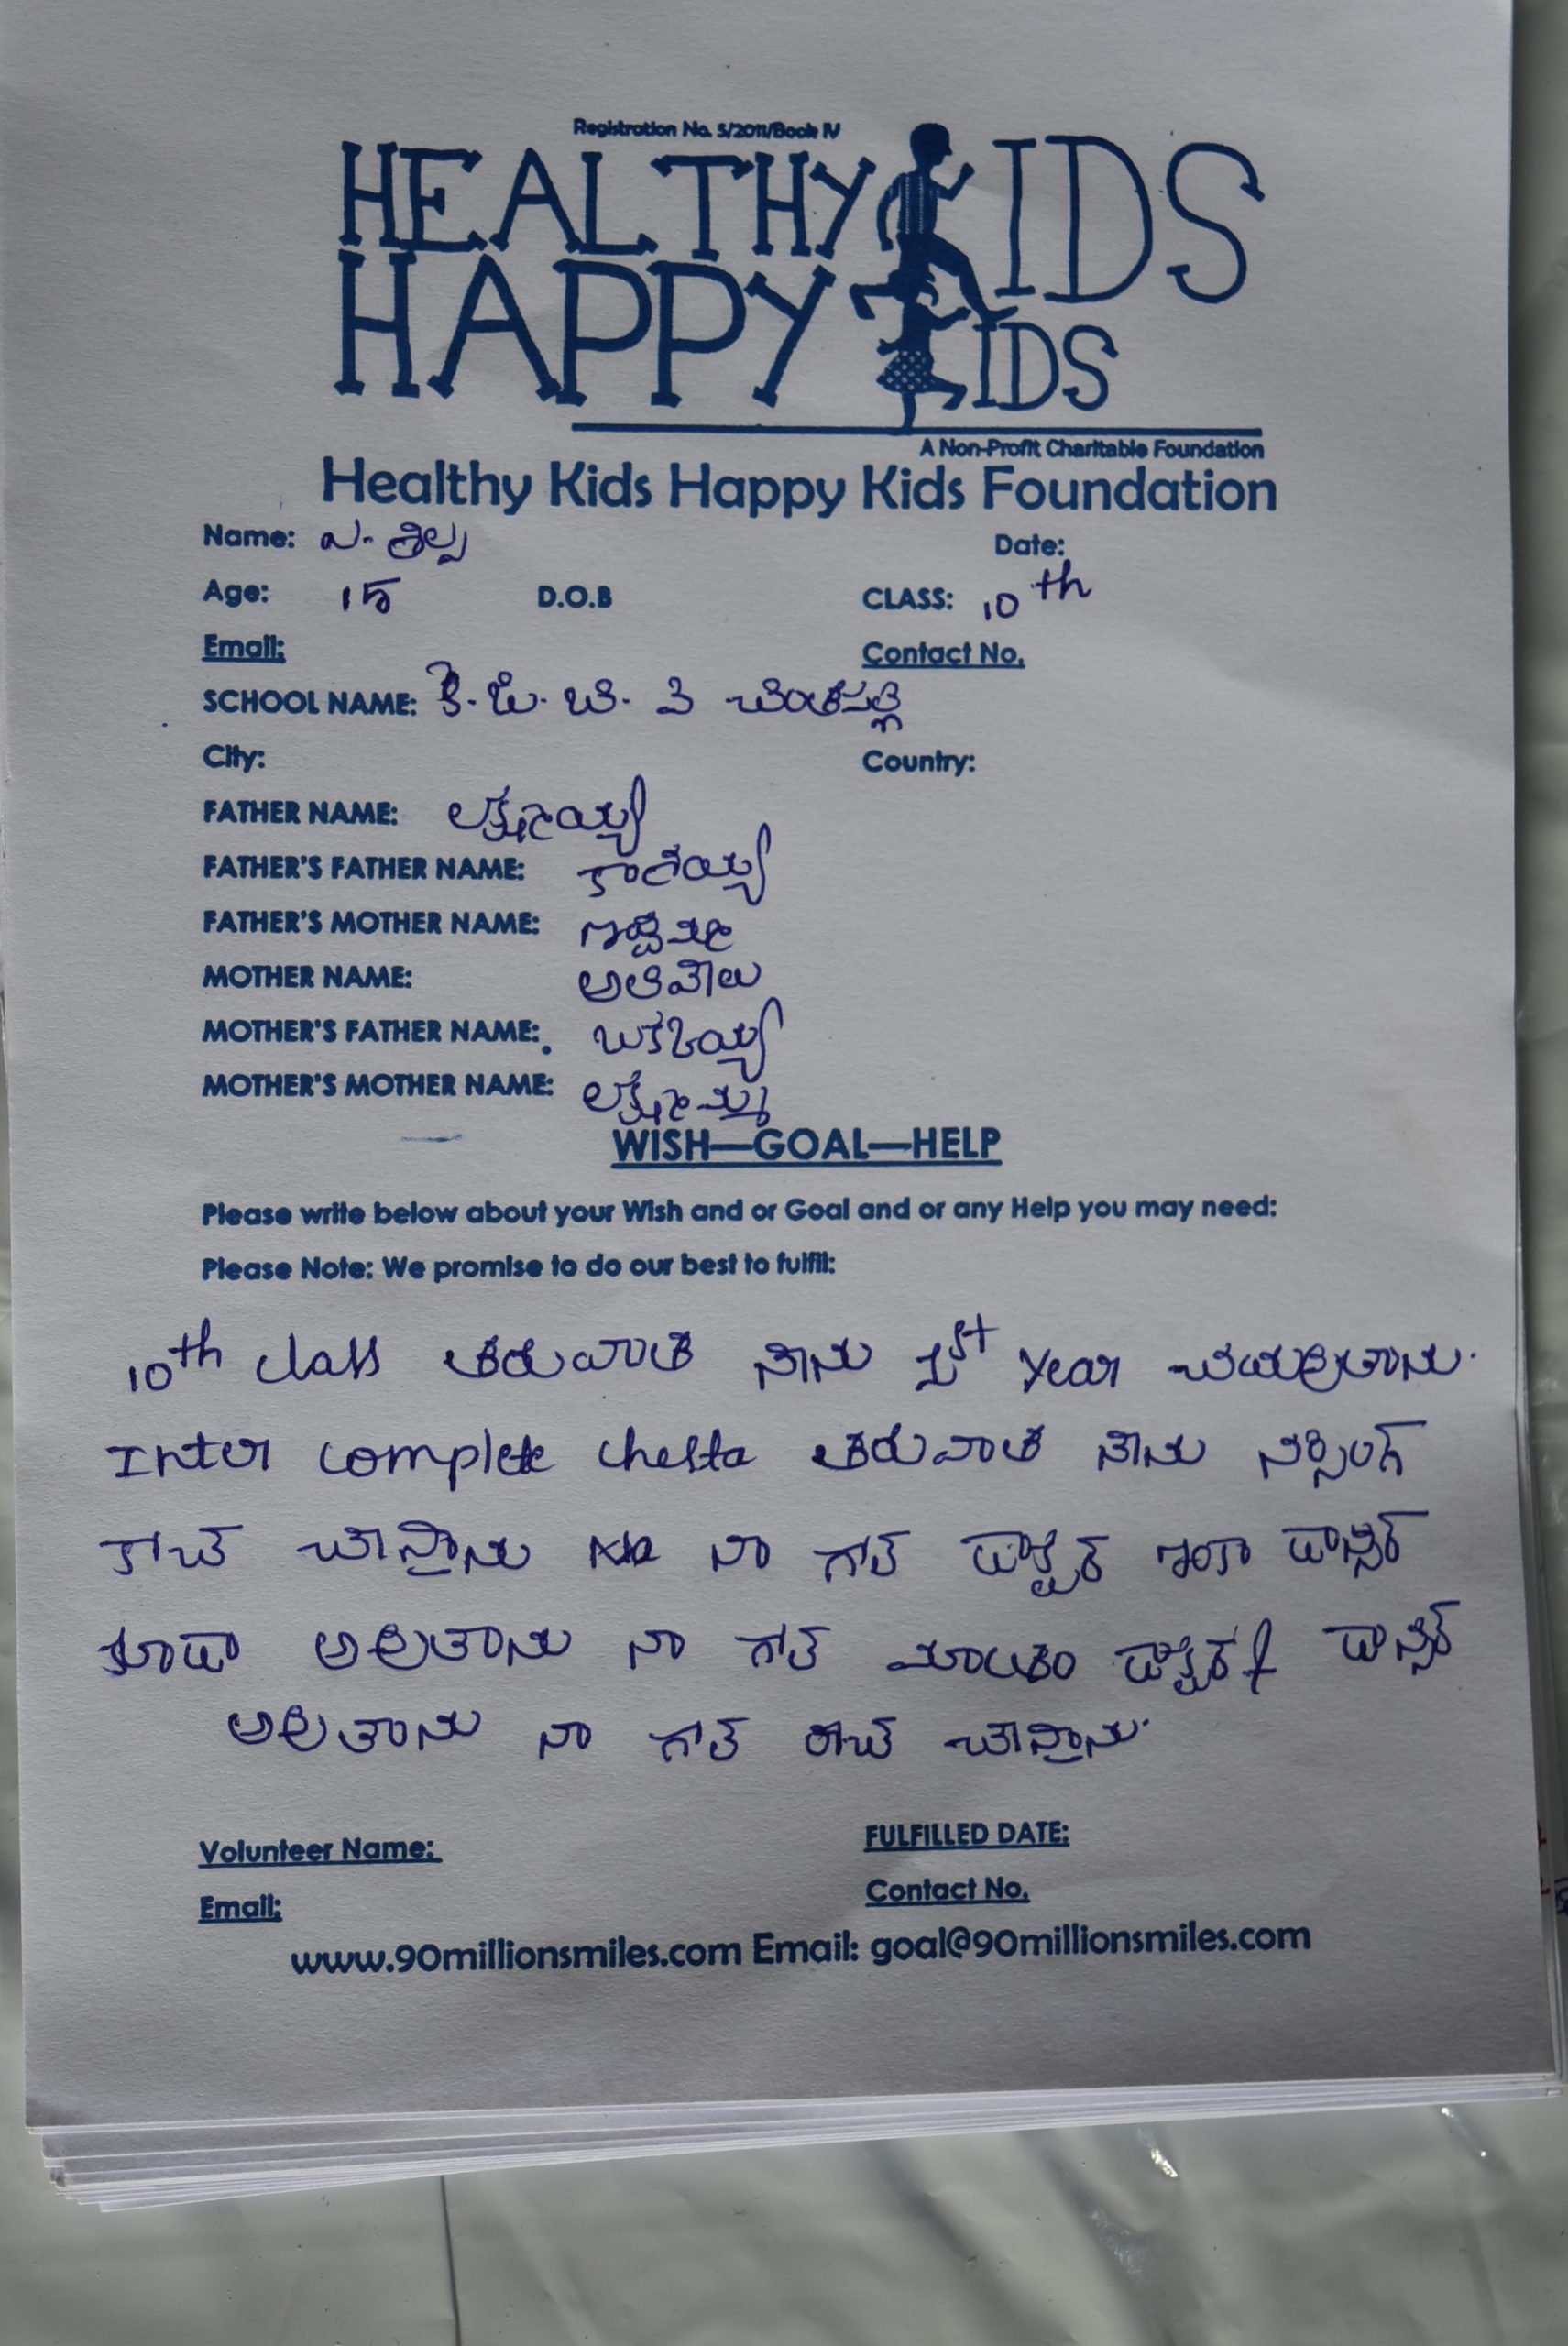 Registration No. 5/2011/Book IV
HEALTHY KIDS
HAPPY KIDS
A Non-Profit Charitable Foundation
Healthy Kids Happy Kids Foundation
Name: ఎ. శిల్ప Date:
Age: 15 D.O.B CLASS: 10th
Email: Contact No.
SCHOOL NAME: కె. జి. బి. వి చింతపల్లి
City: Country:
FATHER NAME: లక్ష్మయ్య
FATHER'S FATHER NAME:
FATHER'S MOTHER NAME:
MOTHER NAME: అలివేలు
MOTHER'S FATHER NAME:
MOTHER'S MOTHER NAME: లక్ష్మమ్మ
WISH—GOAL—HELP
Please write below about your Wish and or Goal and or any Help you may need:
Please Note: We promise to do our best to fulfil:
10th class తరువాత నేను 1st year
Inter complete chesta తరువాత నేను నర్సింగ్
కోచ్ చేస్తాను నా గోల్ డాక్టర్ ఇంకా డాన్సర్
కూడా అవుతాను నా గోల్ మాత్రం డాక్టర్ & డాన్సర్
అవుతాను నా గోల్ రీచ్ చేస్తాను.
Volunteer Name: FULFILLED DATE:
Email: Contact No.
www.90millionsmiles.com Email: goal@90millionsmiles.com